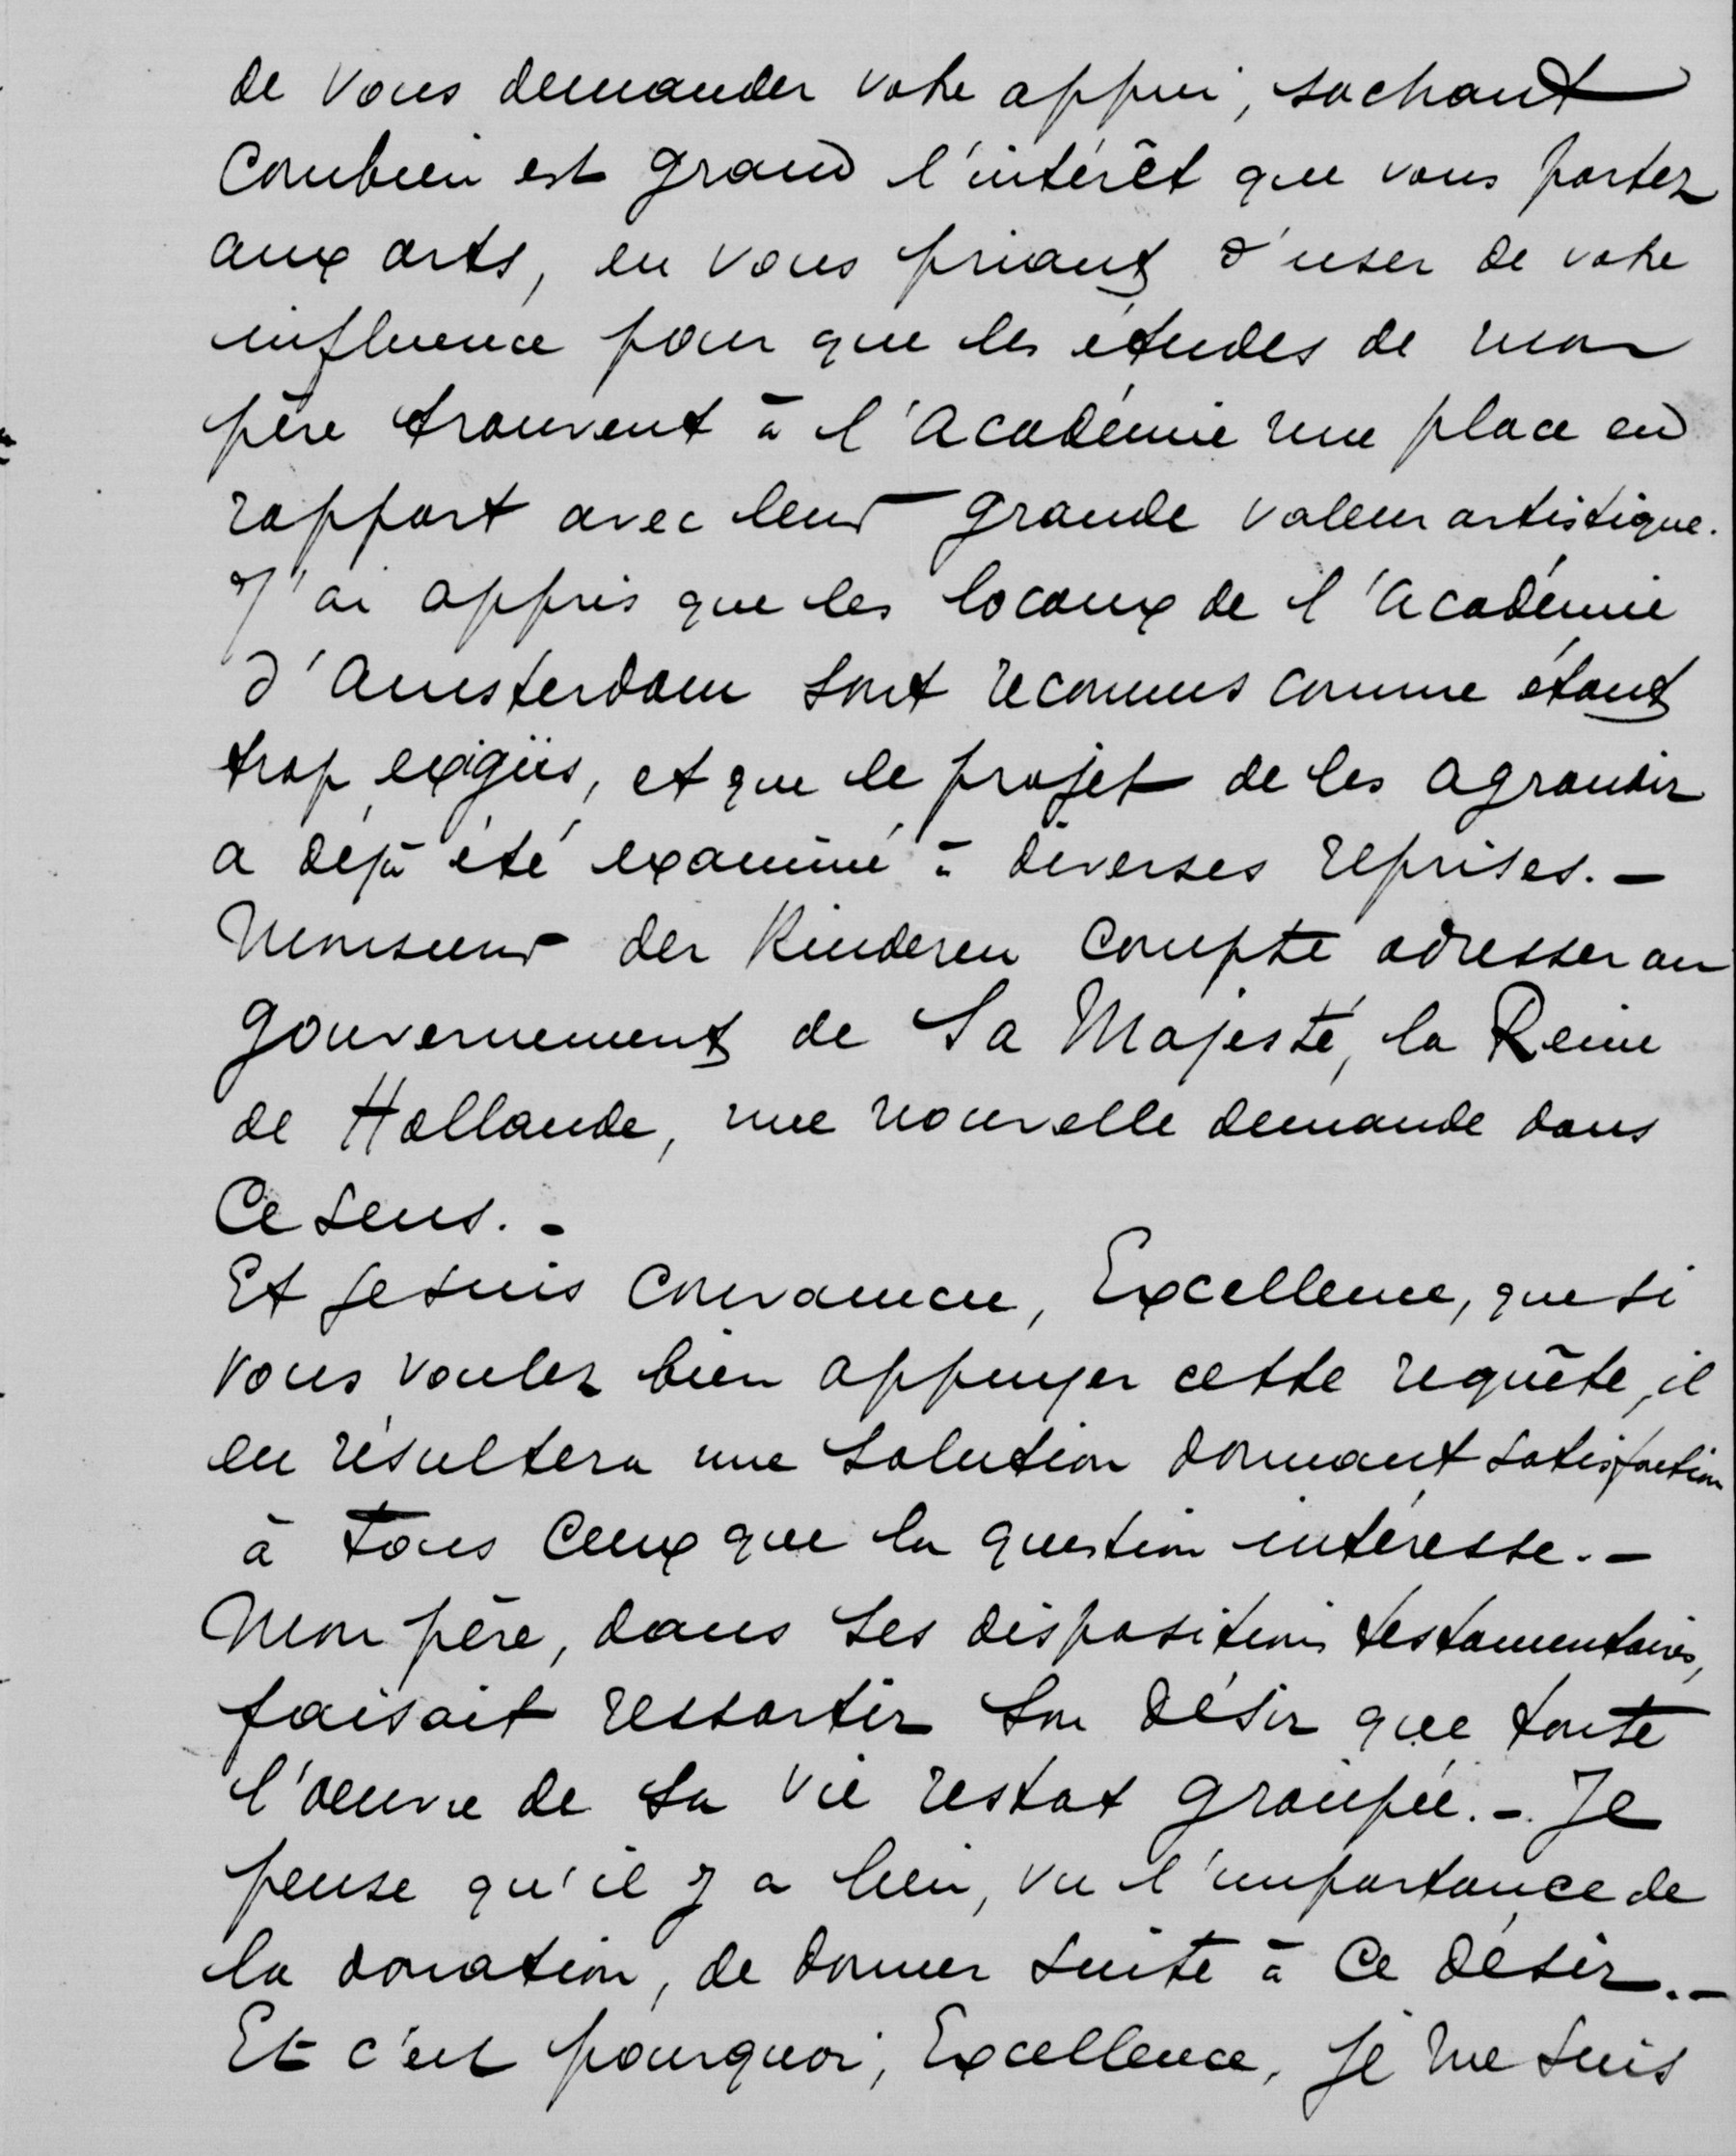 de vous demander votre appui, sachant
combien est grand l'intérêt que vous portez
aux arts, en vous priant d'user de votre
influence pour que les études de mon
père trouvent à l'Académie une place en
rapport avec leur grande valeur artistique.
J'ai appris que les locaux de l'Académie
d'Amsterdam sont reconnus comme étant
trop exigüs, et que le projet de les agrandir
a déjà été examiné à diverses reprises. -
Monsieur der Kinderen compte adresser au
gouvernement de Sa Majesté, la Reine
de Hollande, une nouvelle demande dans
ce sens. -
Et je suis convaincu, Excellence, que si
vous voulez bien appuyer cette requête, il
en résultera une solution donnant satisfaction
à tous ceux que la question intéresse. -
Mon père, dans ses dispositions testamentaires,
faisait ressortir son désir que toute
l'oeuvre de sa vie restat groupée. - Je
pense qu'il y a lieu, vu l'importance de
la donation, de donner suite à ce désir. -
Et c'est pourquoi, Excellence, je me suis